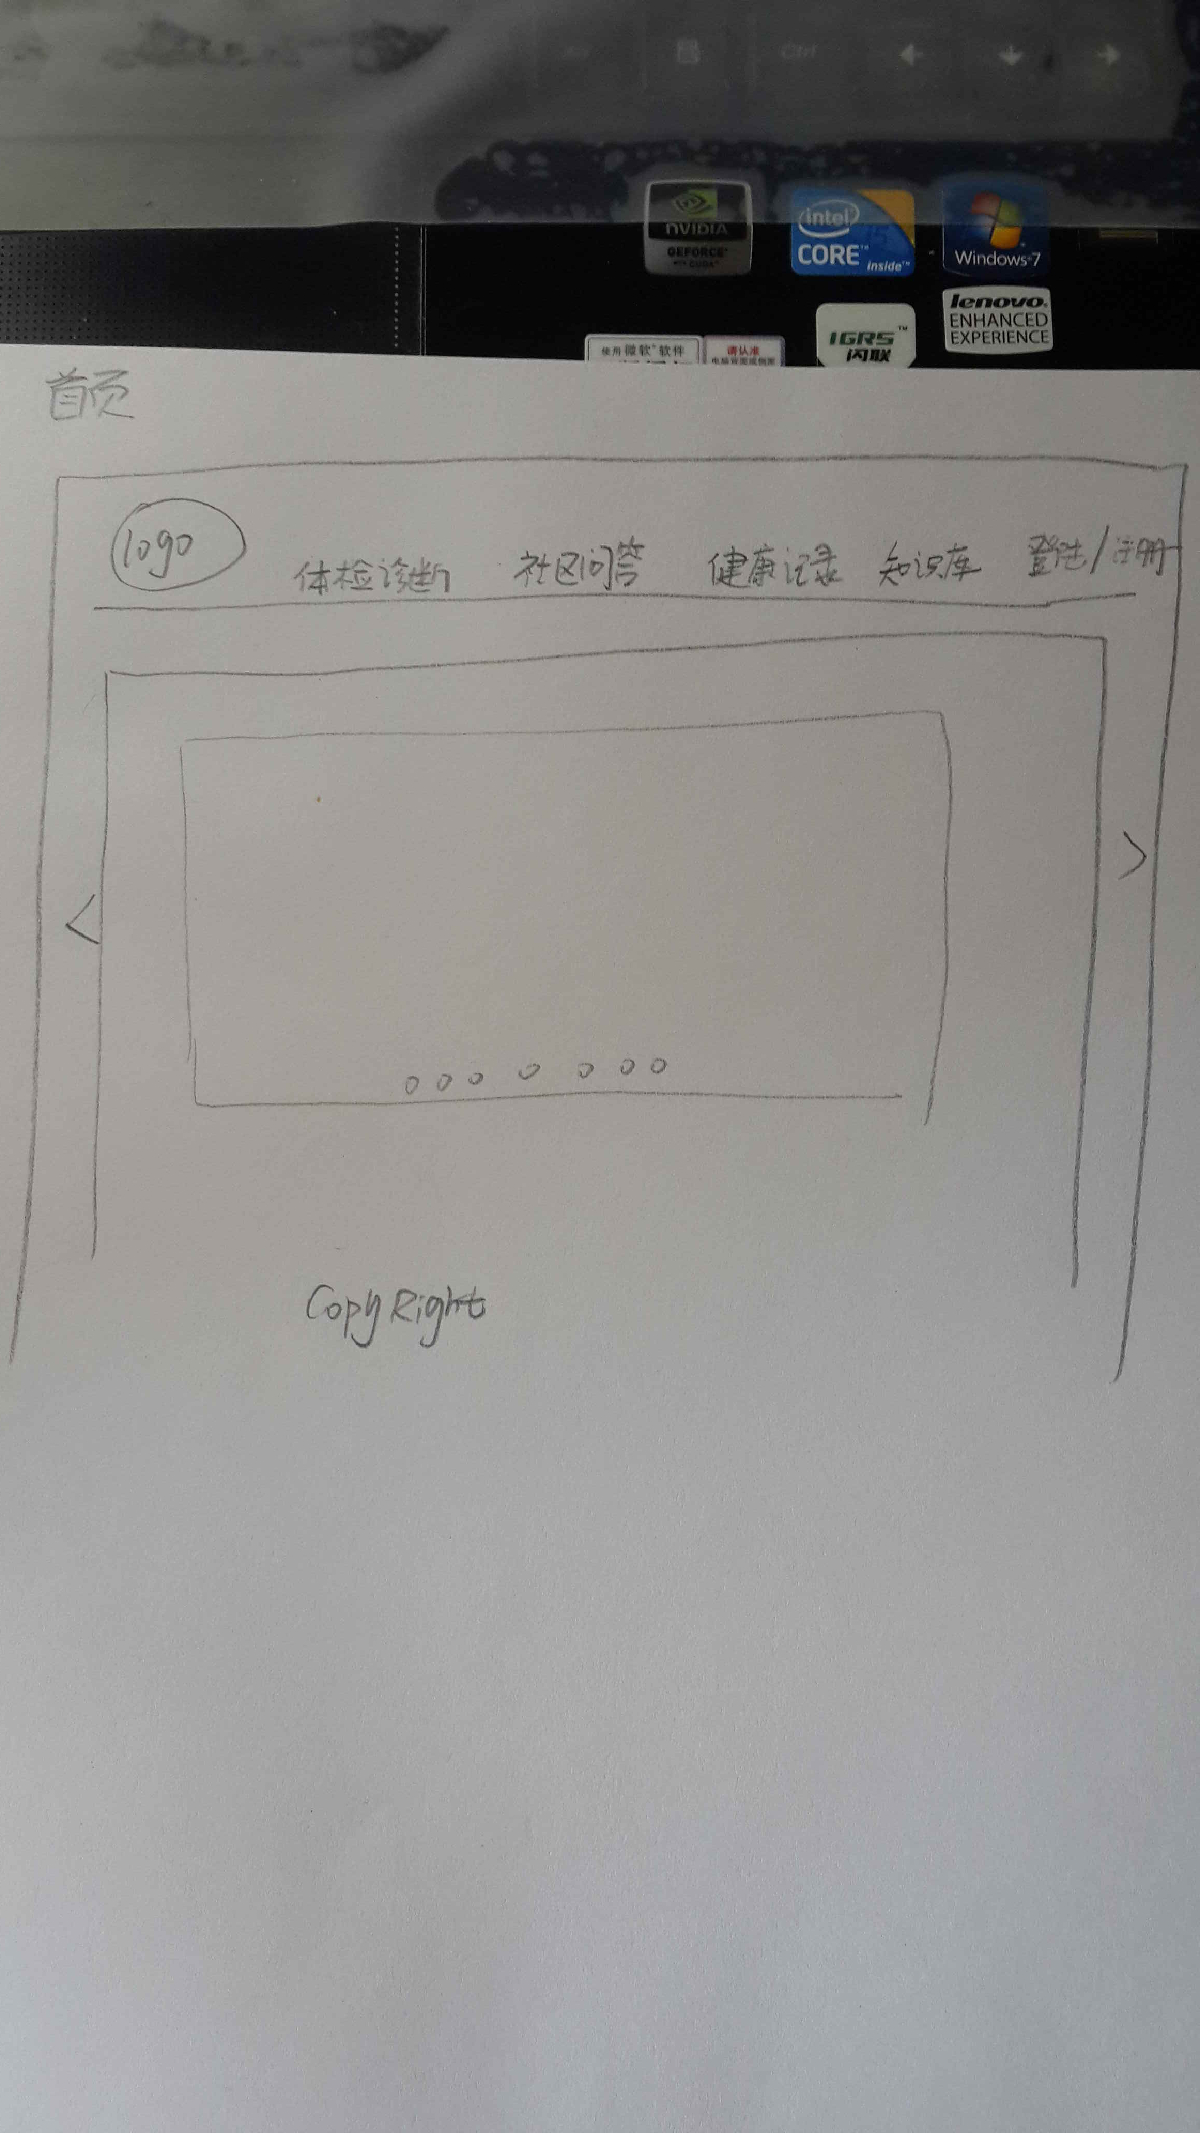 Ctrl
NVIDIA
GEFORCE
CUDA
intel
CORE i5
inside
Windows 7
lenovo
ENHANCED
EXPERIENCE
IGRS
闪联
使用 微软 软件
请认准
首页
logo 体检诊断 社区问答 健康记录 知识库 登陆/注册
<
>
CopyRight